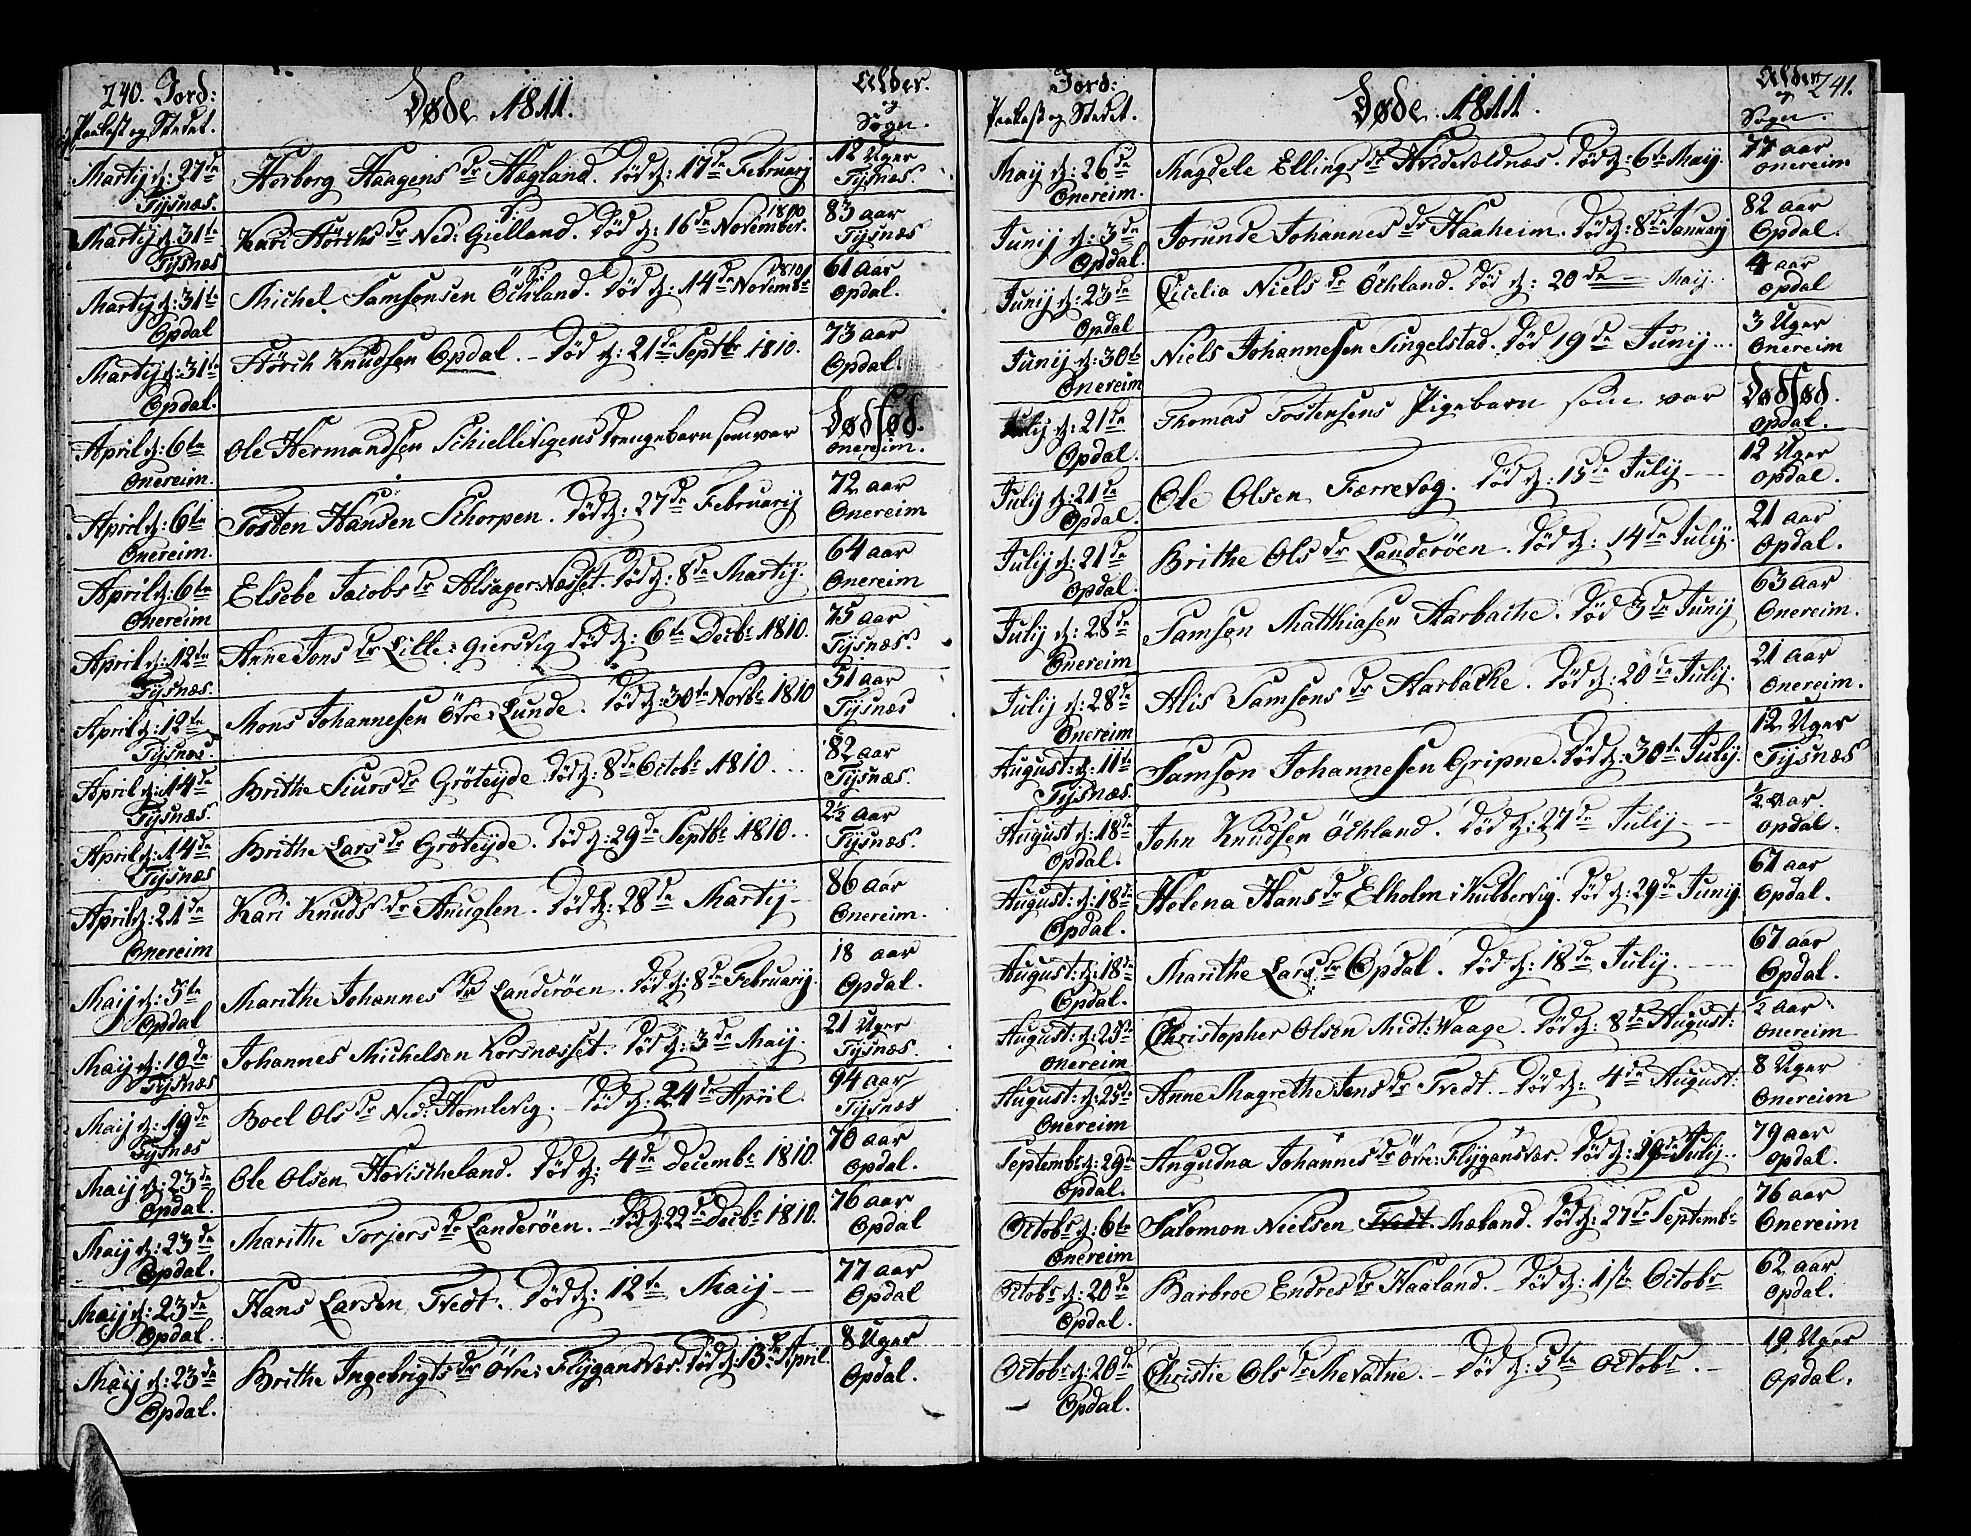 240. Jord:
Paakast og Stedet.
Døde 1811.
Alder.
og
Sogn.
Martij d: 27de Herborg Haagens dr Hagland. Død d: 17de Februarij 12 Uger
Tysnæs. Tysnæs.
Martij d: 31te Kari Störchs dr Ned: Gielland. Død d: 16de November. 1810 83 aar
Tysnæs Tysnæs
Martij d: 31te Michel Samsonsen Öchland. Død d: 14de Novembr 1810 61 aar
Opdal Opdal.
Martij d: 31te Störch Knudsen Opdal. Død d: 21de Septbr 1810. 73 aar
Opdal. Opdal.
April d: 6te Ole Hermandsen Schiellevigens Drengebarn som var Dødfød.
Onereim. Onereim.
April d: 6te Tosten Hansen Schorpen. Død d: 27de Februarij 72 aar
Onereim. Onereim
April d: 6te Elsebe Jacobs dr Alsager Næsset. Død d: 8de Martij. 64 aar
Onereim Onereim
April d: 12te Anne Jons dr Lille: Giersvig død d: 6te Decbr 1810. 75 aar
Tysnæs. Tysnæs.
April d: 12te Mons Johannesen Övre: Lunde. Død d: 30te Novbr 1810 51 aar
Tysnæs Tysnæs
April d: 14de Brithe Siurs dr Gröteyde. Død d: 8de Octobr 1810. 82 aar
Tysnæs. Tysnæs.
April d: 14de Brithe Lars dr Gröteyde. Død d: 29de Septbr 1810. 2½ aar
Tysnæs Tysnæs.
April d: 21de Kari Knuds dr Anuglen. Død d: 28de Martij 86 aar
Onereim Onereim.
Maij d: 5te Marithe Johannes dr Landeröen. Død d: 8de Februarij. 18 aar
Opdal Opdal.
Maij d: 10de Johannes Michelsen Korsnæsset. Død d: 3de Maij. 21 Uger
Tysnæs Tysnæs.
Maij d: 19de Boel Ols dr Ned: Homlevig. Død d: 24de April. 94 aar
Tysnæs Tysnæs
Maij d: 23de Ole Olsen Hovischeland. Død d: 4de Decembr 1810. 70 aar
Opdal. Opdal.
Maij d: 23de Marithe Torjers dr Landeröen. Død d: 22de Decbr 1810. 76 aar
Opdal. Opdal
Maij d: 23de Hans Larsen Tvedt. Død d: 12te Maij 77 aar
Opdal. Opdal
Maij d: 23de Brithe Ingebrigts dr Övre: Flygansvær. Død d: 13de April. 8 Uger
Opdal. Opdal.
Jord:
Paakast og Stedet.
Døde 1811.
Alder 241.
og
Sogn.
Maij d: 26de Magdele Ellings dr Hvidevoldnæs. Død d: 6te Maij. 77 aar
Onereim. Onereim
Junij d: 3de Jorunde Johannes dr Haaheim. Død d: 8de Januarij 82 aar
Opdal. Opdal.
Junij d: 23de Cicelia Niels dr Öchland. Død d: 20de Maij 4 aar
Opdal Opdal
Junij d: 30te Niels Johannesen Singelstad. Død 19de Junij 3 Uger
Onereim Onereim
Julij d: 21de Thomas Tostensens Pigebarn som var Dødfød.
Opdal. Opdal.
Julij d: 21de Ole Olsen Færrevog. Død d: 15de Julij 12 Uger
Opdal. Opdal.
Julij d: 21de Brithe Ols dr Landeröen. Død d: 14de Julij. 21 aar
Opdal. Opdal.
Julij d: 28de Samson Matthiasen Aarbache. Død 3de Junij 63 aar
Onereim Onereim.
Julij d: 28de Alis Samsons dr Aarbache. Død d: 20de Julij. 21 aar
Onereim Onereim.
August: d: 11te Samson Johannesen Gripne. Død d: 30te Julij. 12 Uger
Tysnæs. Tysnæs
August d: 18de John Knudsen Öchland. Død d: 27de Julij ½ aar.
Opdal. Opdal.
August: d: 18de Helena Hans dr Elholm i Kubbervig. Død d: 29de Junij. 67 aar
Opdal. Opdal.
August: d: 18de Marithe Lars dr Opdal. Død d: 18de Julij. 67 aar
Opdal. Opdal.
August: d: 25de Christopher Olsen Midt: Waage. Død d: 8de August: ½ aar
Onereim Onereim
August: d: 25de Anne Magrethe Jens dr Tvedt. Død d: 4de August: 8 Uger
Onereim Onereim
Septembr d: 29de Angudna Johannes dr Övre: Flygansvær. Død d: 19de Julij. 79 aar
Opdal. Opdal.
Octobr d: 6te Salomon Nielsen Tvedt. Meland. Død d: 27de Septembr 76 aar
Onereim Onereim
Octobr d: 20de Barbroe Endres dr Haaland. Død d: 1ste Octobr 62 aar
Opdal. Opdal.
Octobr d: 20de Christie Ols dr Mevatne. Død d: 5te Octobr. 19 Uger
Opdal. Opdal.